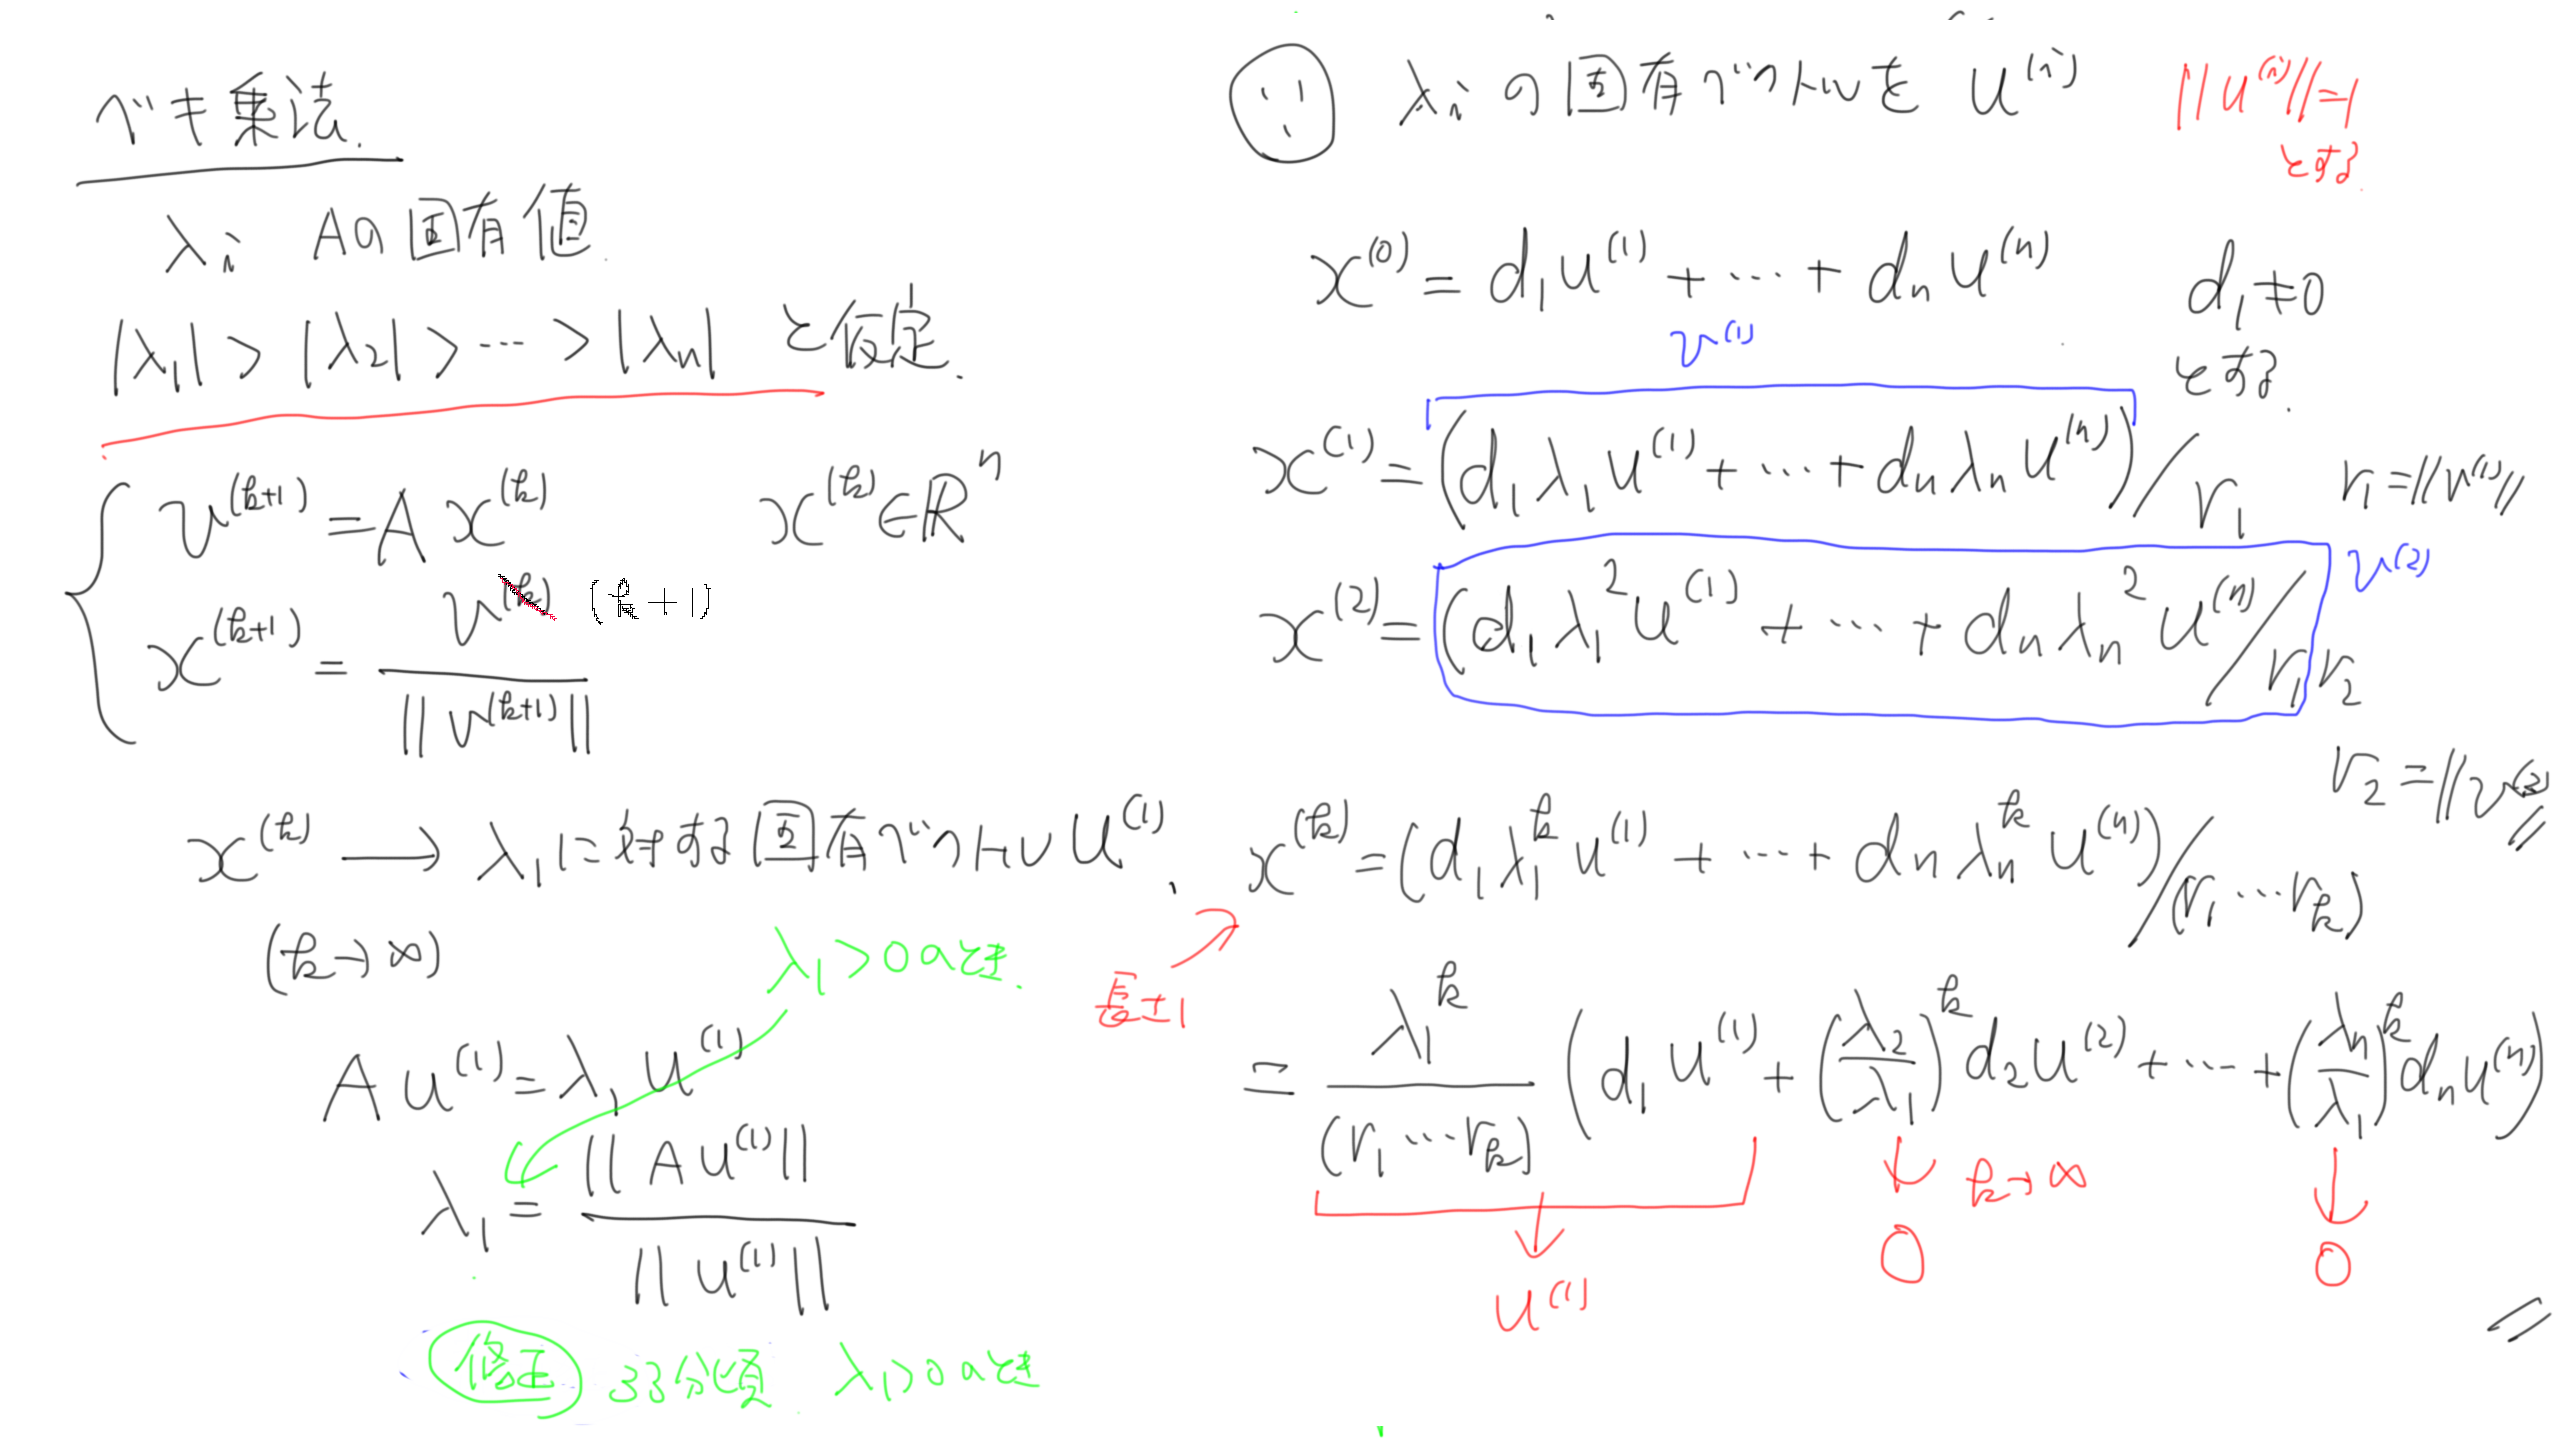 ベキ乗法.
λi Aの固有値.
|λ1| > |λ2| > … > |λn| と仮定.
v^(k+1) = A x^(k)  x^(k) ∈ R^n
x^(k+1) = v^(k) (k+1) / ||v^(k+1)||
x^(k) → λ1に対する固有ベクトル u^(1).
(k→∞)
λ1>0のとき.
A u^(1) = λ1 u^(1)
λ1 = ||A u^(1)|| / ||u^(1)||
修正 33分頃 λ1>0のとき
∵ λiの固有ベクトルを u^(i) ||u^(i)||=1
とする.
x^(0) = d1 u^(1) + … + dn u^(n)  d1≠0
とする.
v^(1)
x^(1) = (d1 λ1 u^(1) + … + dn λn u^(n)) / r1  r1 = ||v^(1)||
v^(2)
x^(2) = (d1 λ1^2 u^(1) + … + dn λn^2 u^(n) / r1 r2
r2 = ||v^(2)||
x^(k) = (d1 λ1^k u^(1) + … + dn λn^k u^(n)) / (r1 … rk)
長さ1
= λ1^k / (r1 … rk) (d1 u^(1) + (λ2/λ1)^k d2 u^(2) + … + (λn/λ1)^k dn u^(n))
↓ k→∞ ↓
↓ 0 0
u^(1)
//